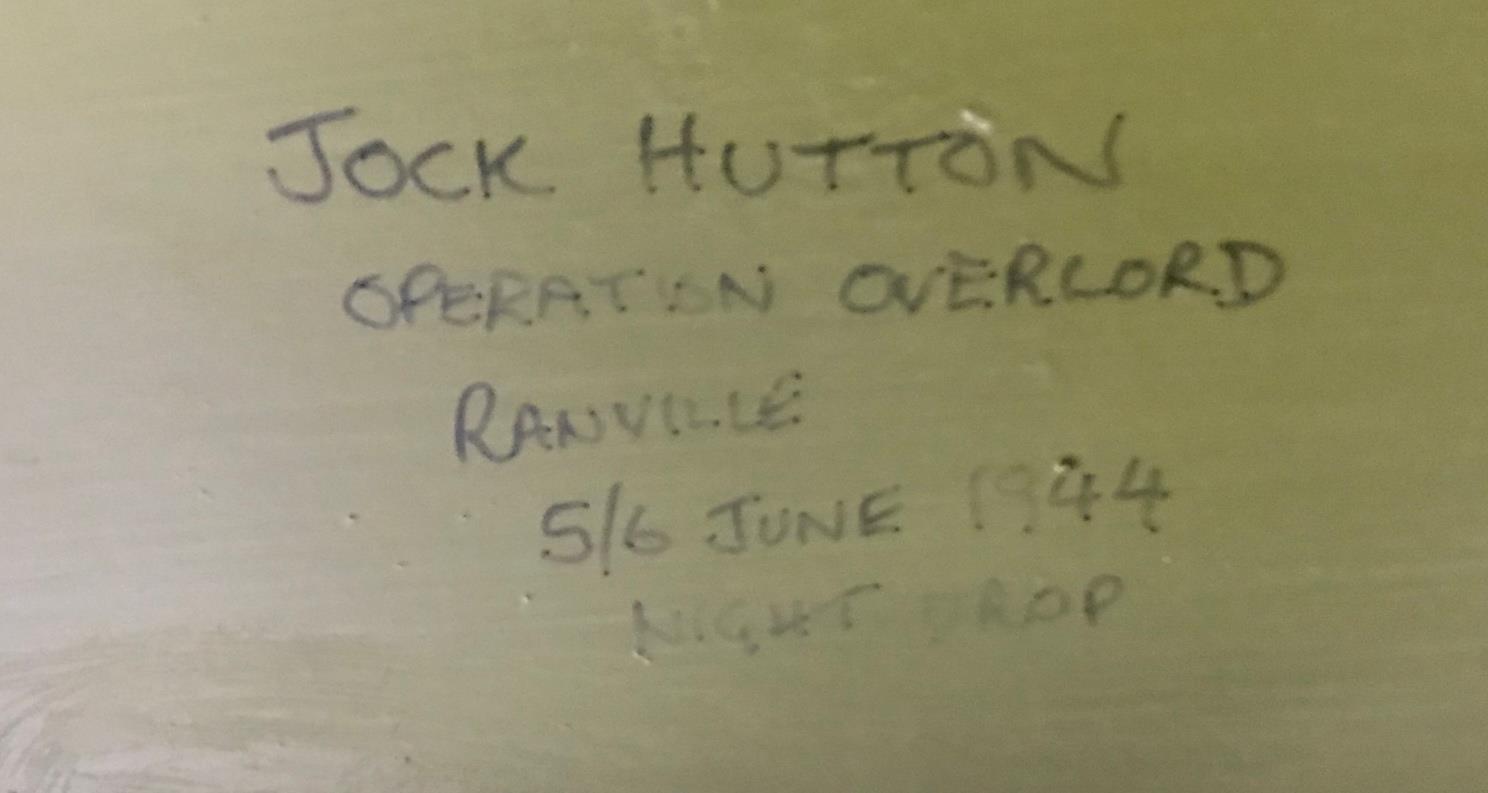 JOCK HUTTON
OPERATION OVERLORD
RANVILLE
5/6 JUNE 1944
NIGHT DROP